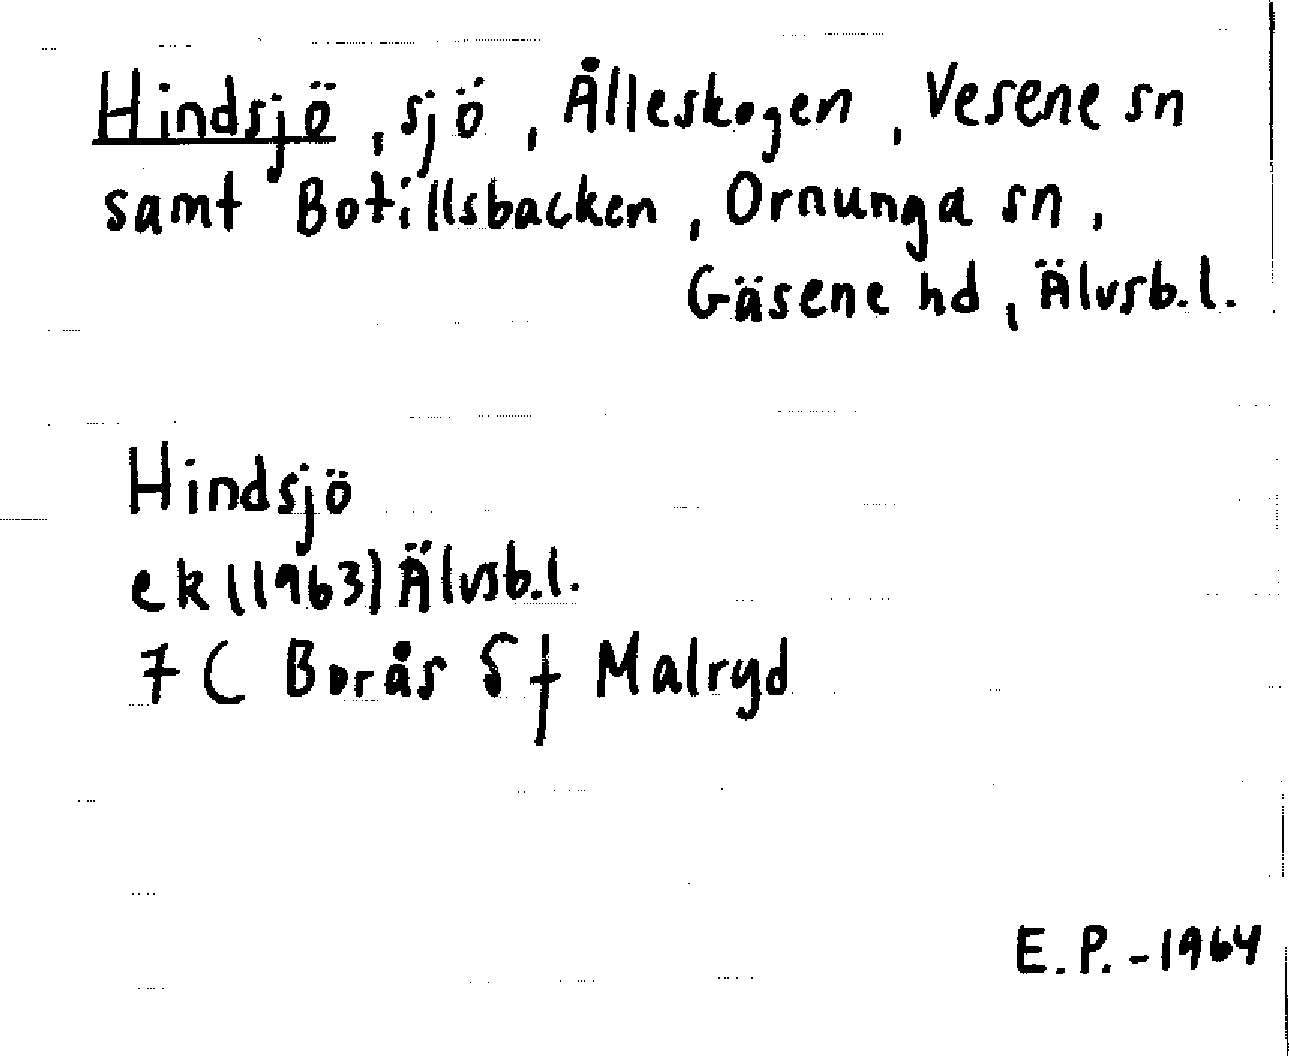 Hindsjö, sjö, Ålleskogen, Vesene sn
samt Botillsbacken, Ornunga sn,
Gäsene hd, Älvsb.l.
Hindsjö
ek (1963) Älvsb.l.
7C Borås S f Malryd
E.P.-1964